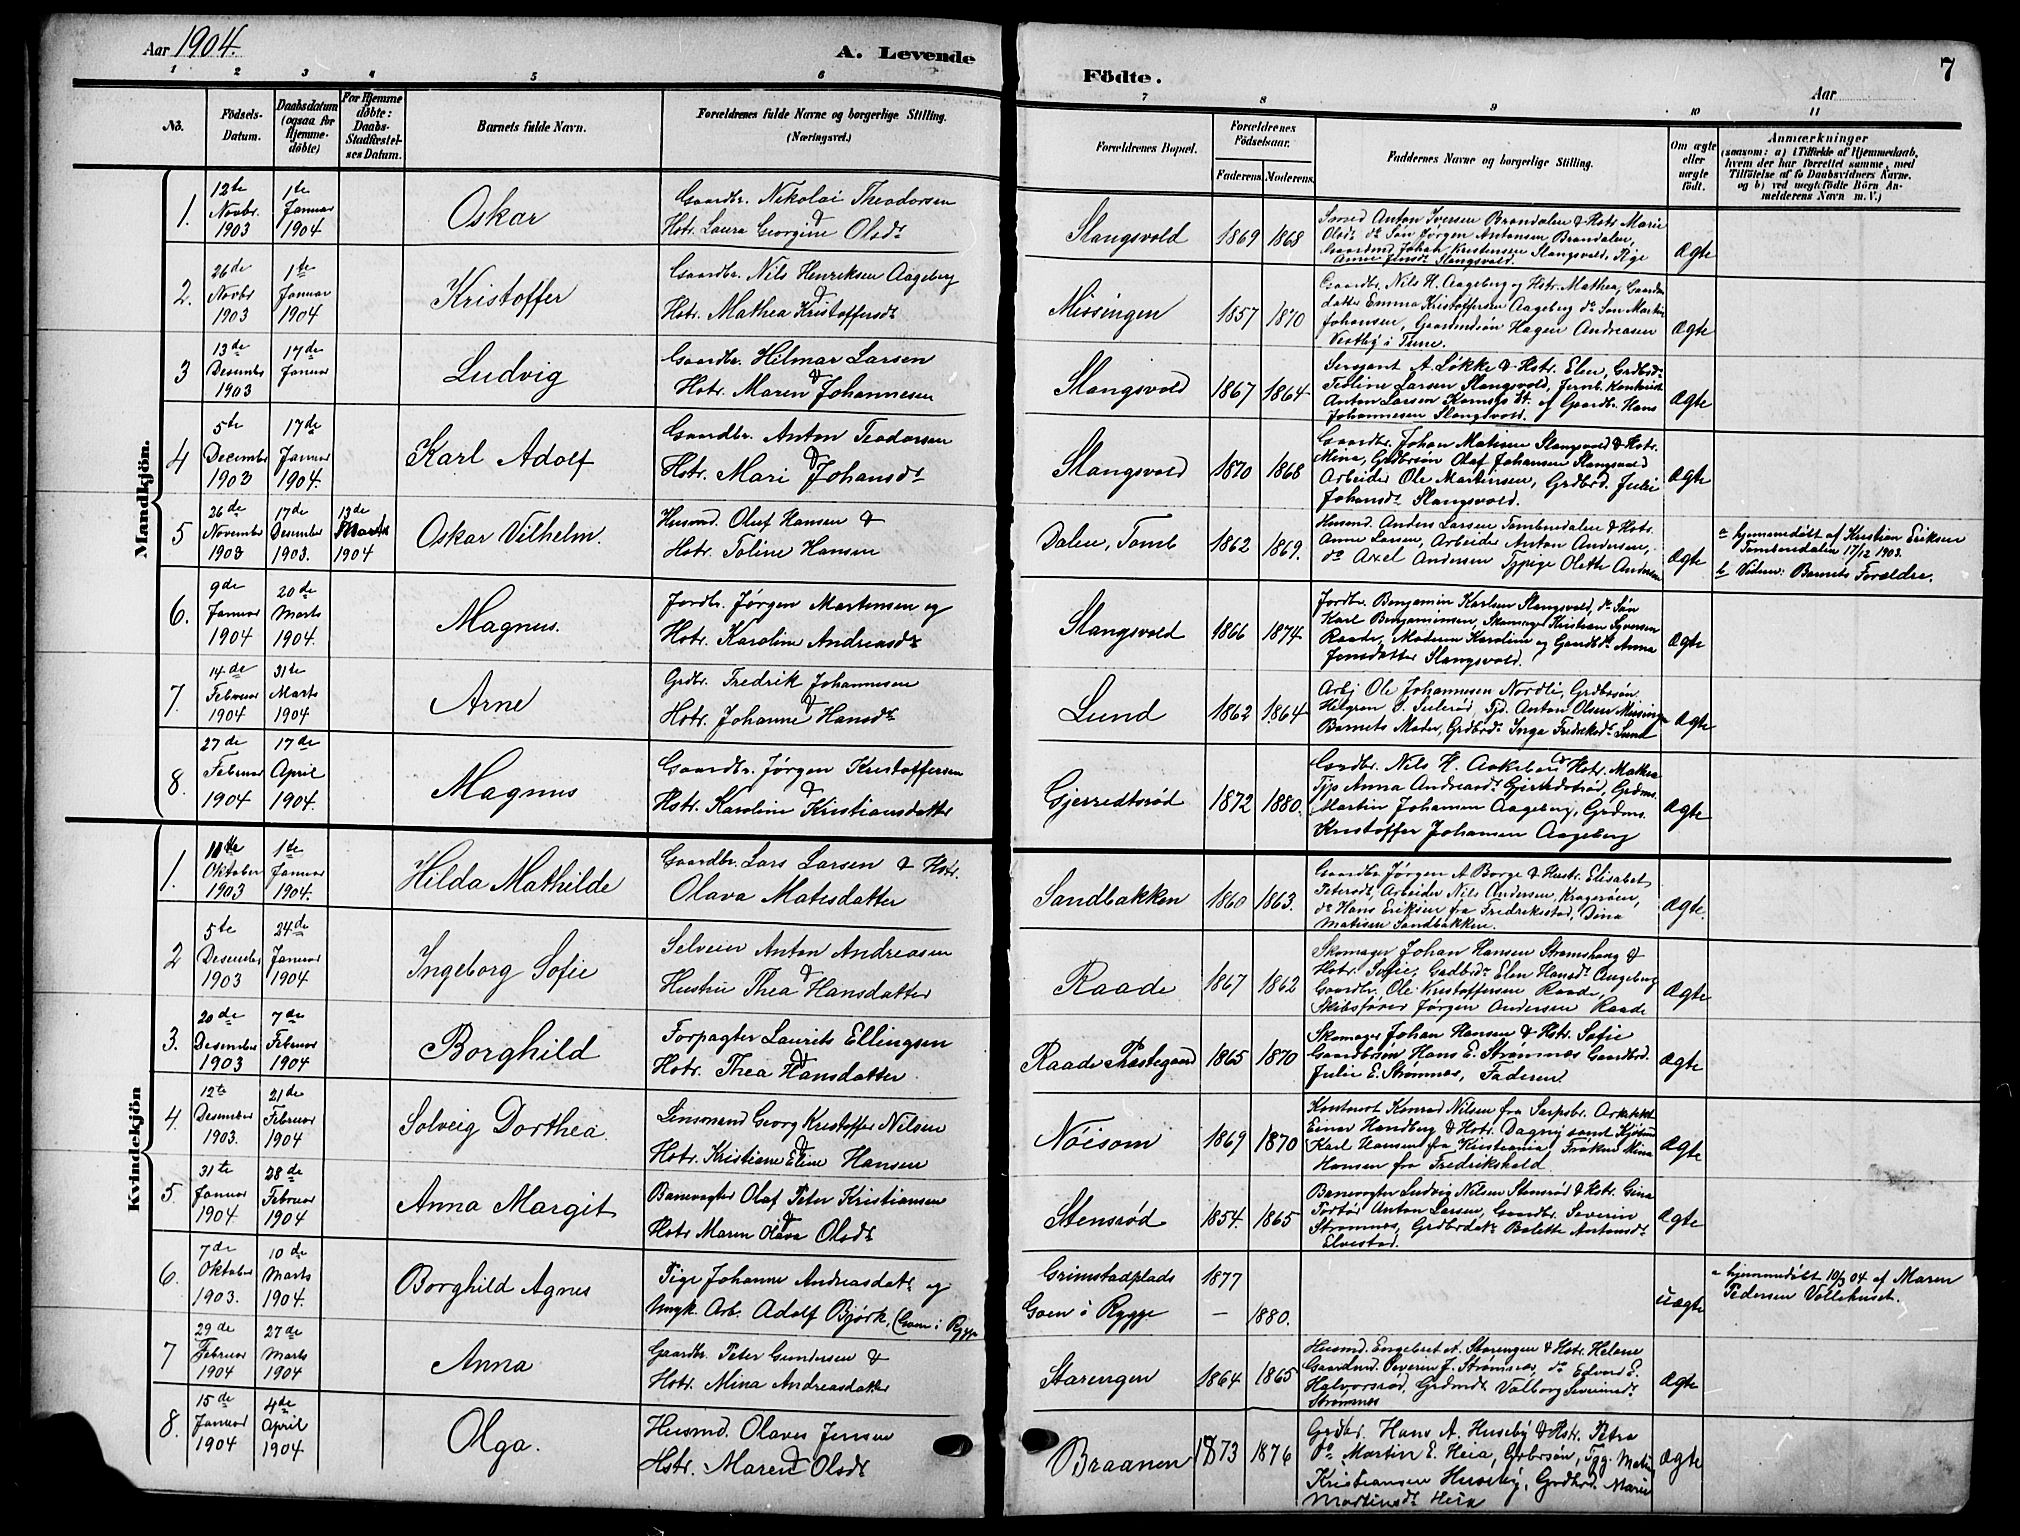 Aar 1904.
A. Levende
Födte.
7
Aar
1 2 3 4 5 6
7 8 9 10 11
No.
Födsels-
Datum.
Daabsdatum
(ogsaa for
Hjemme-
döbte)
For Hjemme
döbte:
Daabs-
Stadfæstel-
ses Datum.
Barnets fulde Navn.
Forældrenes fulde Navne og borgerlige Stilling.
(Næringsvei.)
Forældrenes Bopæl.
Forældrenes
Födselsaar.
Faderens. Moderens.
Faddernes Navne og borgerlige Stilling.
Om ægte
eller
uægte
födt.
Anmærkninger
(saasom: a) i Tilfælde af Hjemmedaab,
hvem der har forrettet samme, med
Tilföielse af to Daabsvidners Navne.
og b) ved uægtefödte Börn An-
melderens Navn m. V.)
Mandkjön.
1. 12te Novbr. 1903 1te Januar 1904 Oskar
Gaardbr. Nikolai Theodorsen
& Hstr. Laura Georgine Olsdtr
Slangsvold 1869 1868
Smed Anton Iversen Brandalen & Hstr Marie
Olsdtr do Søn Jørgen Antonsen, Brandalen,
Gaardmd Johan Kristensen Slangsvold, Pige
Anne Jensdtr Slangsvold.
Ægte
2. 26de Novbr 1903 1te Januar 1904 Kristoffer
Gaardbr. Nils Henriksen Aageberg
& Hstr. Mathea Kristoffersdtr
Missingen 1857 1870
Gaardbr. Nils H. Aageberg og Hstr. Mathea, Gaardm
datter Emma Kristoffersen Aageberg do Søn Martin
Johansen, Gaardmdsøn Hagen Andreasen
Vestby i Tune.
Ægte
3 13de Desember 1903 17de Januar Ludvig
Gaardbr. Hilmar Larsen
& Hstr. Maren Johannesen
Slangsvold 1867 1864
Sersjant A. Løkke & Hstr. Elen, Grdbrdtr
Teoline Larsen Slangsvold, Jernb. Kontorist
Anton Larsen Kornsjø St. og Gaardbr. Hans
Johannesen Slangsvold.
Ægte
4 5te December 1903 17de Januar 1904. Karl Adolf
Gaardbr. Anton Teodorsen
& Hstr. Mari Johansdtr
Slangsvold 1870 1868
Gaardbr. Johan Matisen Slangsvold & Hstr.
Mina, Grdbrsøn Olaf Johansen Slangsvold
Arbeider Ole Martinsen, Grdbrd. Julie
Johansdtr Slangsvold.
Ægte
5 26de November 1903 17de Desember 1903. 13de Marts 1904 Oskar Vilhelm.
Husmd. Oluf Hansen &
Hstr. Toline Hansen
Dalen, Tomb 1862 1869.
Husmd. Anders Larsen Tombmedalen & Hstr.
Anne Larsen, Arbeider Anton Andersen,
do Axel Andersen Tjpige Olette Andersen
Ægte
a hjemmedøbt af Kristian Eriksen
Tombmedalen 17/12 1903.
b Vidner: Barnets Forældre.
6. 9de Januar 1904 20de Marts 1904. Magnus.
Jordbr. Jørgen Martensen og
Hstr. Karoline Andreasdtr
Slangsvold 1866 1874
Jordbr. Benjamin Karlsen Slangsvold, do Søn
Karl Benjaminsen, Skomager Kristian Syversen
Raade, Moderen Karoline og Gaardbdtr Anna
Jensdatter Slangsvold.
Ægte
7. 14de Februar 1904 31te Marts 1904 Arne
Grdbr. Fredrik Johannesen
& Hstr. Johanne Hansdtr
Lund 1862 1864
Arbj Ole Johannesen Nordli, Grdbrsøn
Barnets Moder, Grdbrdtr Inga Fredriksdtr Lund
Ægte
8. 27de Februar 1904 17de April 1904. Magnus
Gaardbr. Jørgen Kristoffersen
& Hstr. Karoline Kristiansdatter
Gjerredtsrød 1872 1880.
Grdbr. Nils H. Aakeberg & Hstr. Mathea
Tjp Anna Andreasdtr Gjerredtsrød, Grdms.
Martin Johansen Aageberg, Grdms.
Kristoffer Johansen Aageberg
Ægte
Kvindekjön
1. 11te Oktober 1903 1te Januar 1904. Hilda Mathilde
Gaardbr. Lars Larsen & Hstr.
Olava Matisdatter
Sandbakken 1860 1863.
Gaardbr Jørgen A Borge & Hustr. Elisabet
Petersdtr, Arbeider Nils Andersen, Kragerøien,
do Hans Eriksen fra Fredriksstad, Dina
Matisen Sandbakken.
Ægte.
2 5te Desember 1903 24de Januar 1904 Ingeborg Sofie
Selveier Anton Andreasen
& Hustru Thea Hansdatter
Raade 1867 1862
Skomager Johan Hansen Strømshaug &
Hstr. Sofie, Gadbrdtr Elen Hansdtr Augeberg
Gaardbr. Ole Kristoffersen Raade,
Skibsfører Jørgen Andersen Raade
Ægte
3. 20de Desember 1903 7de Februar 1904 Borghild
Forpagter Laurits Ellingsen
& Hstr. Thea Hansdatter
Raade Præstegaard 1865 1870
Skomager Johan Hansen & Hstr. Sofie
Gaardbrsøn Hans E. Strømnæs Gaardbrd.
Julie E. Strømnæs, Faderen.
Ægte
4. 12te Desember 1903. 21de Februar 1904 Solveig Dorthea.
Lensmand Georg Kristoffer Nilsen
& Hstr. Kristiane Eline Hansen
Noisom 1869 1870
Kontorist Konrad Nilsen fra Sarpsbr. Arkitekt
Einar Handberg & Hstr. Dagny samt Kjøbmd
Karl Hansen fra Kristiania, Frøken Mina
Hansen fra Fredrikshald
Ægte
5. 31te Januar 1904 28de Februar 1904 Anna Margit
Banevogter Olaf Peter Kristiansen
& Hstr Maren Olava Olsdtr
Stensrød 1854. 1865
Banevogter Ludvig Nilsen Stensrød & Hstr. Gina
Anton Larsen, Gaardbr. Severin
Strømnæs, Grdbrdatr Bolette Antonsdtr
Elvestad.
Ægte
6. 7de Oktober 1903. 10de Marts 1904. Borghild Agnes
Pige Johanne Andreasdatr og
Ungk. Arb. Adolf Bjørk, (Goen i Rygge
Grimstadplads 1877
Goen i Rygge – 1880.
uægte
a hjemmedøbt 10/3 04 af Maren
Pedersen Vollehuset.
7 29de Februar 1904 27de Marts 1904 Anna
Gaardbr. Peter Gundersen &
Hstr. Mina Andreasdatter
Starengen 1864 1865
Husmd. Engebret A. Starengen & Hstr. Helene
Gaardmd. Severin J. Strømnæs, do Edvard E.
Halvorsrød, Grdmdtr Valborg Severinsdtr
Strømnæs
Ægte
8. 15de Januar 1904 4de April 1904. Olga.
Husmd. Olaves Jensen
& Hstr. Maren Olsdtr
Braanen 1873 1876
Grdbr. Hans A. Huseby & Hstr. Petra
do Martin E. Heia, Grdbrsøn, Tjg. Matis
Kristiansen Huseby, Grdbrd. Marie
Martinsdtr Heia
Ægte